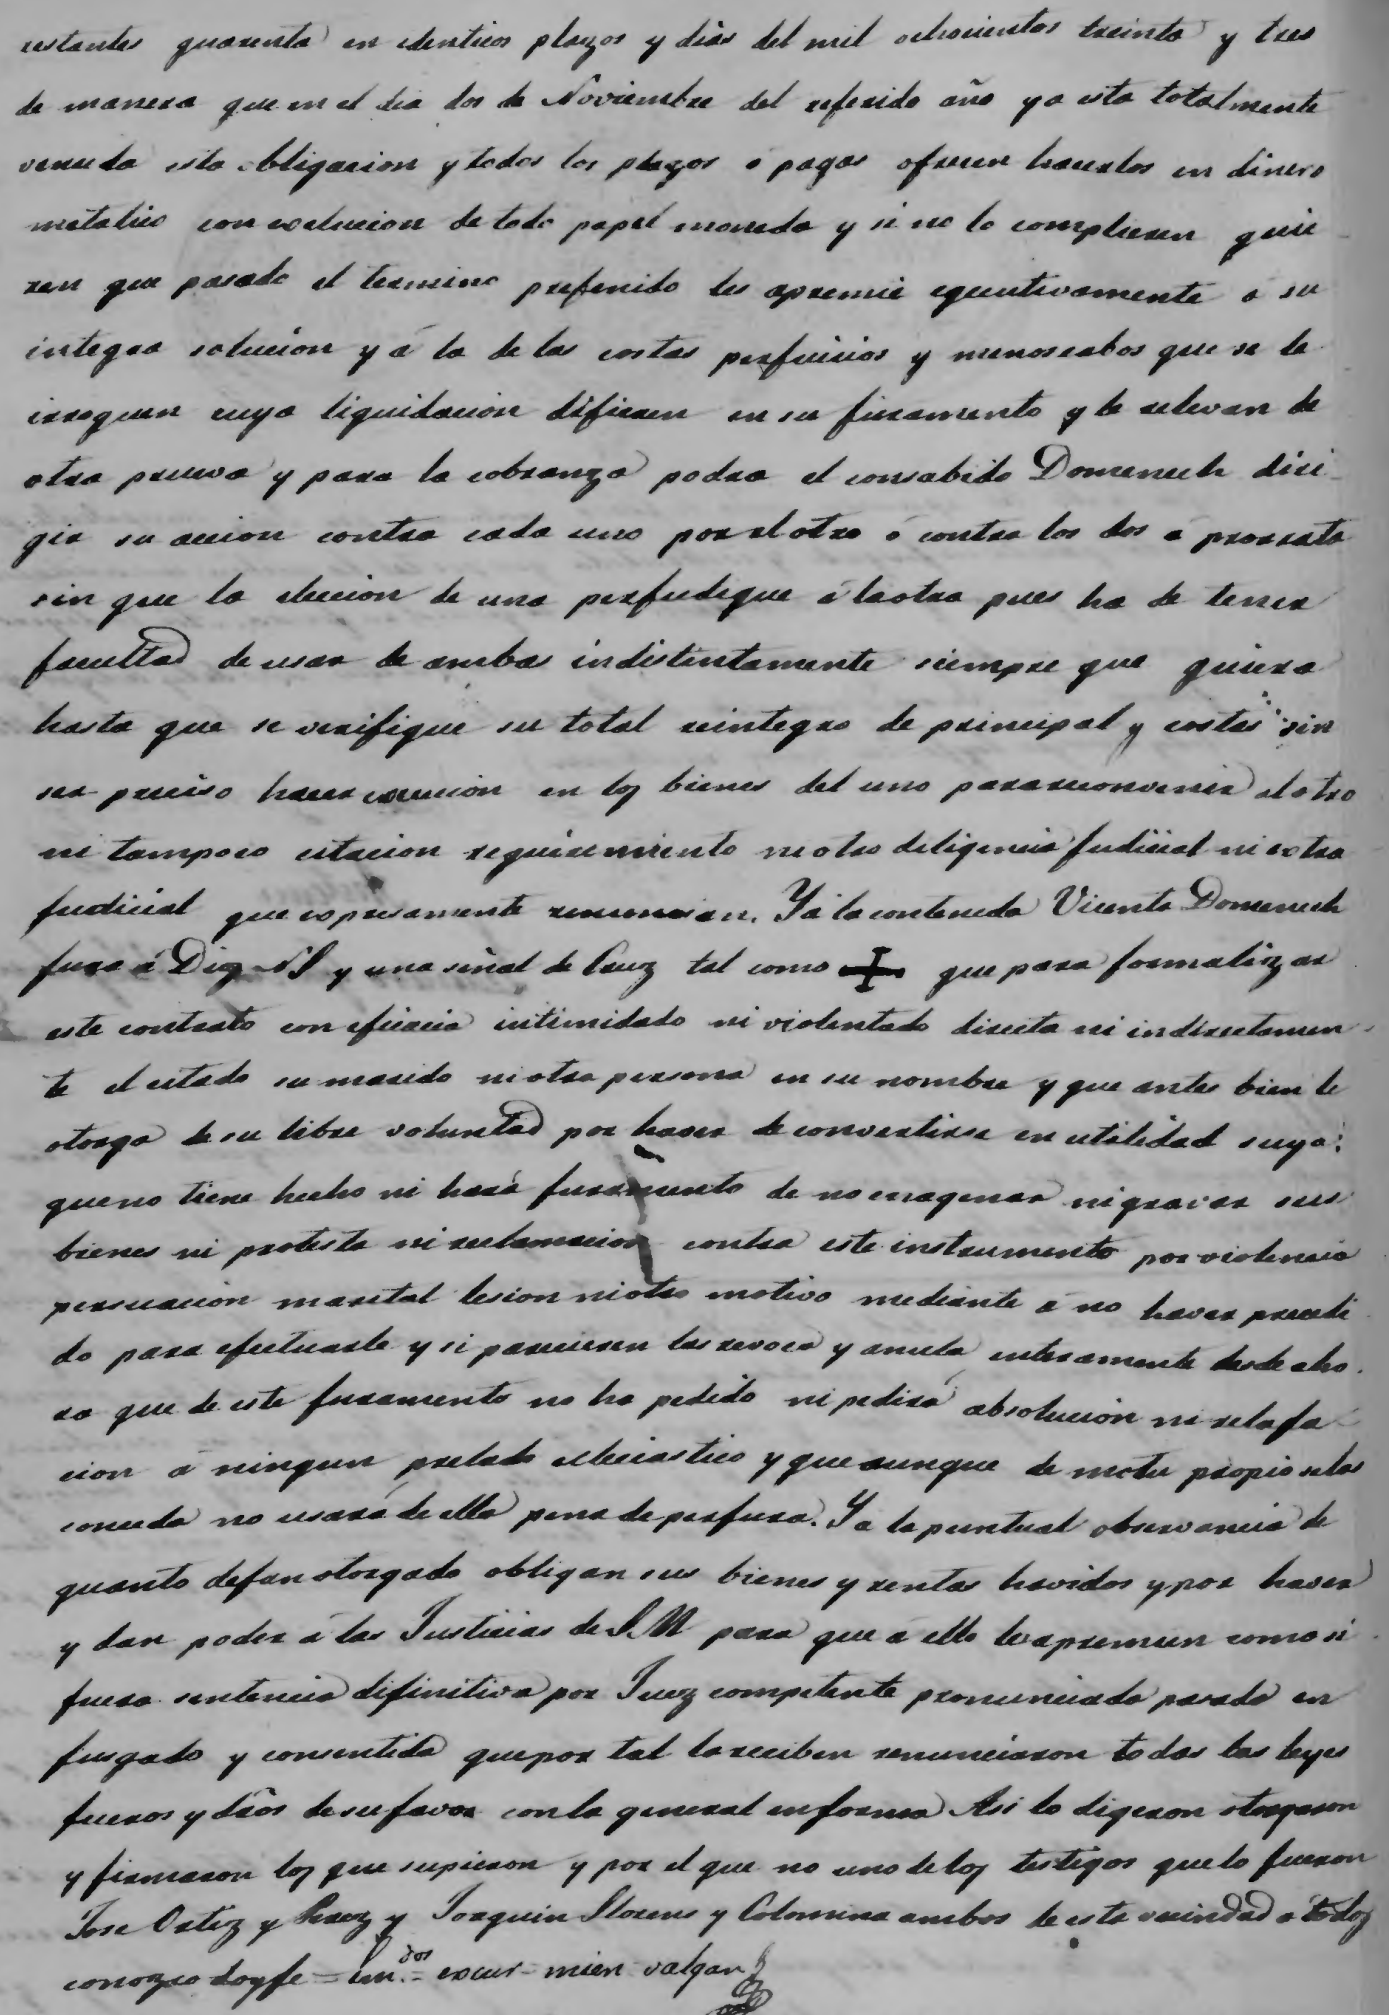 restantes quarenta en identicos plazos y dias del mil ochocientos treinta y tres
de manera que en el dia dos de Noviembre del referido año ya esta totalmente
vencida esta obligacion y todos los plazos o pagas ofrecen hacerlos en dinero
metalico con exclucion de todo papel moneda y si no lo complieren quie
ren que pasado el termino prefenido les apremie egecutivamente a su
integra solucion y á la de las costas perjuicios y menoscabos que se le
irroguen cuya liquidacion difieren en su juramento y le relevan de
otra prueva y para la cobranza podra el consabido Domenech diri
gir su accion contra cada uno por el otro ó contra los dos a prorrata
sin que la eleccion de una perjudique á la otra pues ha de tener
facultad de usar de ambas indistintamente siempre que quiera
hasta que se verifique su total reintegro de principal y costas sin
ser preciso hacer excucion en los bienes del uno para reconvenir al otro
ni tampoco citacion requirimiento ni otra deligencia judicial ni extra
judicial que expresamente renuncian. Y á la contenida Vicenta Domenech
jura á Dios N S y una señal de Cruz tal como ✝ que para formalizar
este contrato con eficacia intimidado ni violentado directa ni indirectamen
te el citado su marido ni otra persona en su nombre y que antes bien le
otorga de su libre voluntad por haver de convertirse en utilidad suya:
que no tiene hecho ni hará juramento de no enagenar ni gravar sus
bienes ni protesta ni reclamacion contra este instrumento por violencia
persuacion marital lesion ni otro motivo mediante á no haver precedi
do para efectuarle y si parecieren las revoca y anula enteramente desde aho
ra que de este juramento no ha pedido ni pedirá absolucion ni relaja
cion á ningun prelado eclesiastico y que aunque de motu propio se las
conceda no usará de ella pena de perjura. Y a la puntual observancia de
quanto dejan otorgado obligan sus bienes y rentas havidos y por haver
y dan poder á las Justicias de S M para que á ello les apremien como si
fuera sentencia difinitiva por Juez competente pronunciada pasada en
jusgado y consentida que por tal la reciben renunciaron todas las leyes
fueros y dros de su favor con la general en forma Asi lo digeron otorgaron
y firmaron los que supieron y por el que no uno de los testigos que lo fueron
Jose Ortiz y Perez y Joaquin Llorens y Colomina ambos de esta vecindad á todos
conozco doy fe = Em.dos = excur = mien valgan